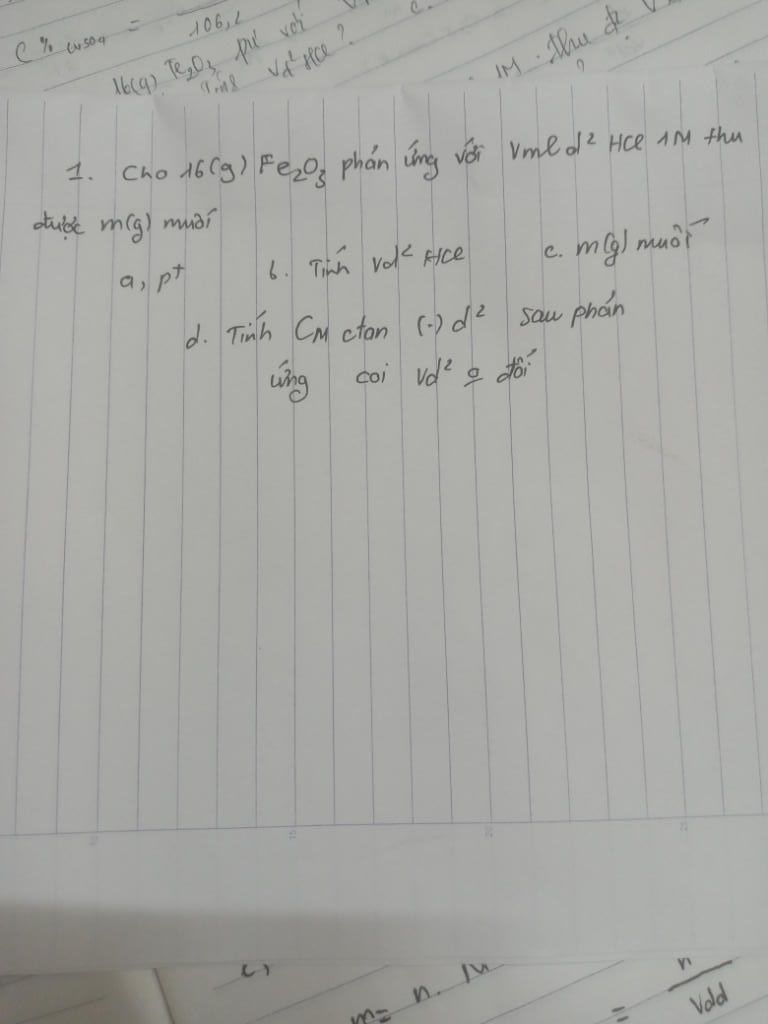 C% CuSO4 = 106,2
16(g) Fe2O3 pư với
Tính Vd² HCl?
1M. thu đ
1. Cho 16(g) Fe2O3 phản ứng với Vml d² HCl 1M thu
được m(g) muối
a, pt b. Tính Vd² HCl c. m(g) muối
d. Tính CM ctan (.) d² sau phản
ứng coi Vd² o đổi
c,
m= n. M
= n
Vdd